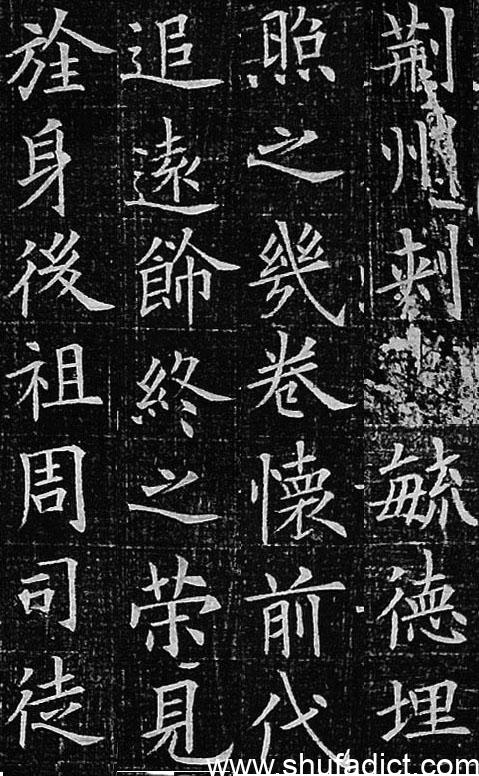 荊州刺毓德埋
照之幾卷懷前代
追遠飾終之荣見
旌身後祖周司徒
www.shufadict.com